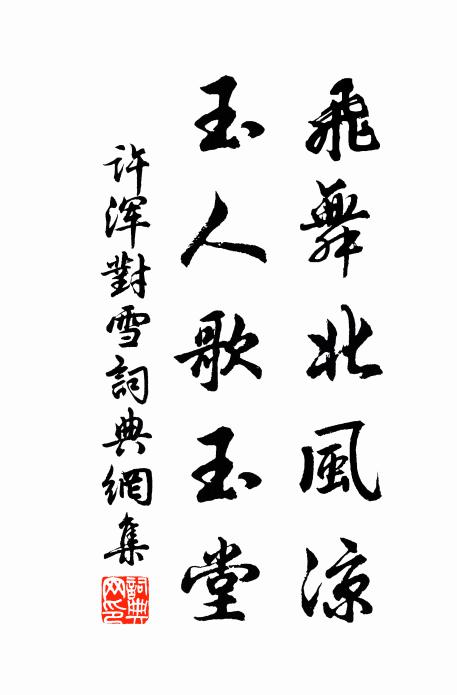 飛舞北風涼
玉人歌玉堂
许浑對雪詞典網集
詞典网印